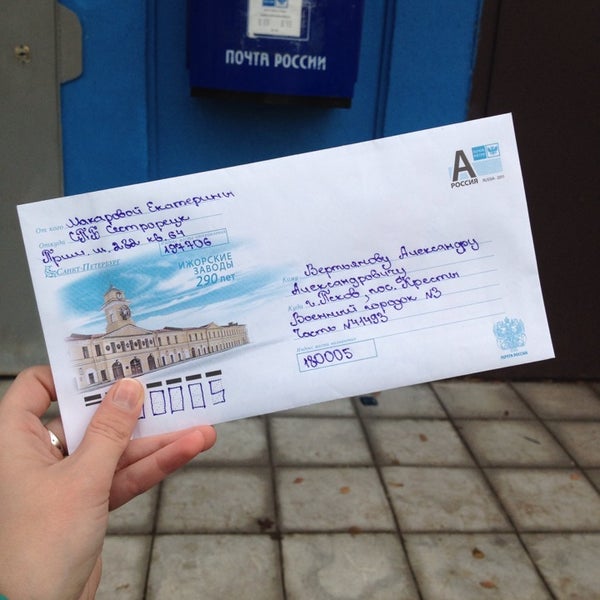 ПОЧТА РОССИИ
А
РОССИЯ RUSSIA 2011
От кого Макаровой Екатерины
Откуда СПб Сестрорецк
Прим. ш. 282 кв. 64
197706
САНКТ-ПЕТЕРБУРГ
ИЖОРСКИЕ
ЗАВОДЫ
290 ЛЕТ
Кому Вертьянову Александру
Александровичу
Куда г. Псков, пос. Кресты
Военный городок №3
Часть №41493
Индекс места назначения
180005
ПОЧТА РОССИИ
80005